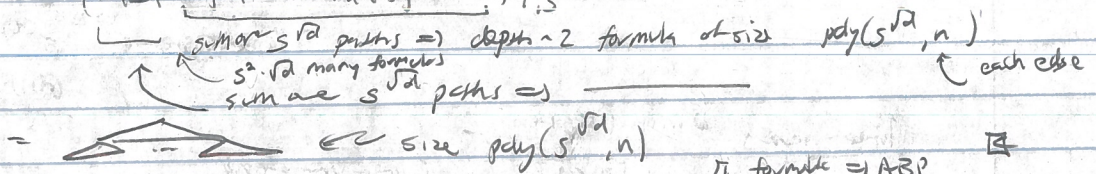 sum over s^√d paths => depth-2 formula of size poly(s^√d, n)
each edge
s^2·√d many formulas
sum over s^√d paths =>
= ... ← size poly(s^√d, n)
formula => ABP